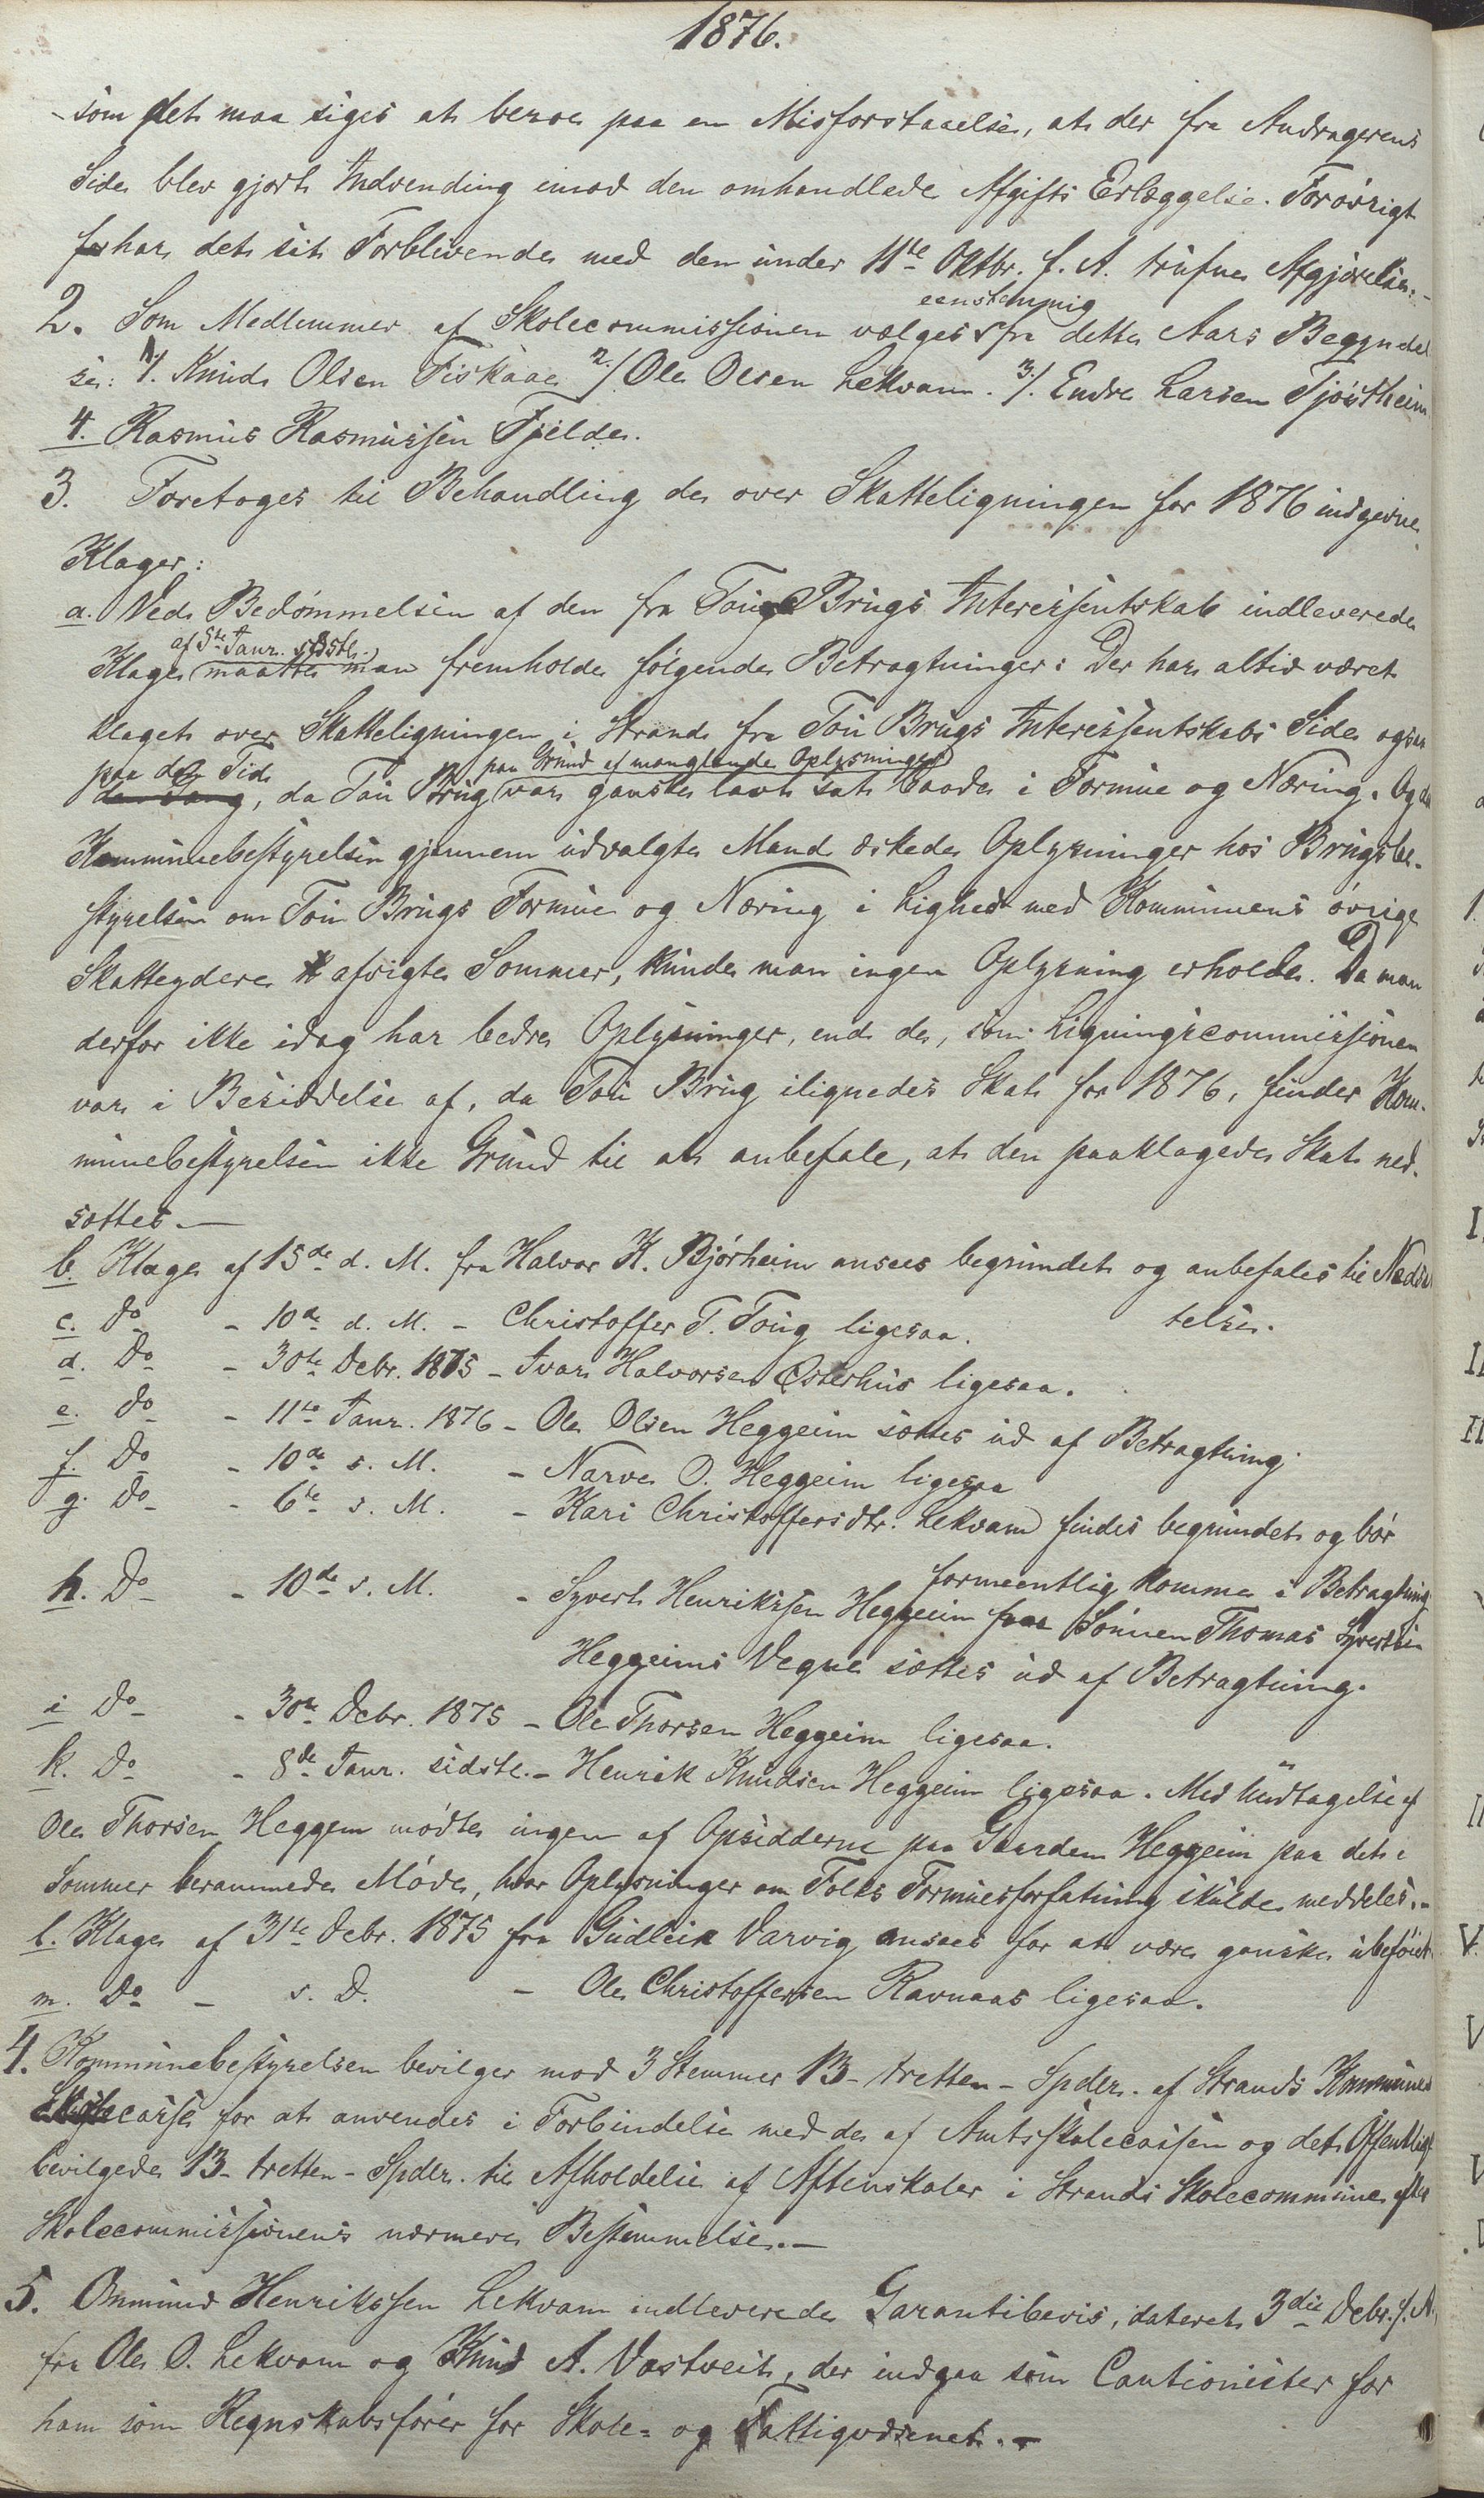 1876.
som det maa siges at beroe paa en Misforstaaelse, at der fra Andragerens
Side blev gjort Indvending imod den omhandlede Afgifts Erlæggelse. Forøvrigt
har det sit Forblivende med den under 11te Oktbr. f. A. trufne Afgjørelse.-
eenstemmig
2. Som Medlemmer af Skolecommissionen vælges fra dette Aars Begyndel
se: 1/. Knud Olsen Fiskaae 2/ Ole Olsen Lekvam. 3/. Endre Larsen Tjøstheim
4. Rasmus Rasmussen Fjelde.
3. Foretoges til Behandling de over Skatteligningen for 1876 indgivne
Klager:
a. Ved Bedømmelsen af den fra Toug Brugs Interessentskab indleverede
af 5te Janr. sidstl.
Klage maatte man fremholde følgende Betragtninger: Der har altid været
klaget over Skatteligningen i Strand fra Tou Brugs Interessentskabs Side ogsaa
paa den Tid paa Grund af manglende Oplysninger
den Gang, da Tou Brug var ganske lavt sat baade i Formue og Næring. Og da
Kommunebestyrelsen gjennem udvalgte Mænd æskede Oplysninger hos Brugsbe-
styrelsen om Tou Brugs Formue og Næring i Lighed med Kommunens øvrige
Skatteydere afvigte Sommer, kunde man ingen Oplysning erholde. Da man
derfor ikke idag har bedre Oplysninger, end de, som Ligningscommissionen
var i Besiddelse af, da Tou Brug ilignedes Skat for 1876, finder Kom-
munebestyrelsen ikke Grund til at anbefale, at den paaklagede Skat ned-
sættes.-
b. Klage af 15de d. M. fra Halvor K. Bjørheim ansees begrundet og anbefales til Nedsæt
telse.
c. Do - 10de d. M. - Christoffer T. Toug ligesaa.
d. Do - 30te Debr. 1875 - Ivar Halvorsen Østerhus ligesaa.
e. Do - 11te Janr. 1876 - Ole Olsen Heggeim sættes ud af Betragtning.
f. Do - 10de s. M. - Narve O. Heggeim ligesaa
g. Do - 6te s. M. - Kari Christoffersdtr. Lekvam findes begrundet og bør
formeentlig komme i Betragtning
h. Do - 10de s. M. - Syvert Henrikssen Heggeim paa Sønnen Thomas Syvertsen
Heggeims Vegne sættes ud af Betragtning.
i Do - 30te Debr. 1875 - Ole Thorsen Heggeim ligesaa.
k. Do - 8de Janr. sidstl. - Henrik Knudsen Heggeim ligesaa. Med Undtagelse af
Ole Thorsen Heggem mødte ingen af Opsidderne paa Gaarden Heggeim paa det i
Sommer berammede Møde, hvor Oplysninger om Folks Formuesforfatning skulde meddeles.-
l. Klage af 31te Debr. 1875 fra Gudleik Varvig ansees for at være ganske ubeføiet
m. Do - s. D. - Ole Christoffersen Ravnaas ligesaa.
4. Kommunebestyrelsen bevilger mod 3 Stemmer 13 - tretten - Spdlr. af Strands Kommunes
casse for at anvendes i Forbindelse med de af Amtsskolecassen og det Offentlige
bevilgede 13 - tretten - Spdlr. til Afholdelse af Aftenskoler i Strands Skolecommune efter
Skolecommissionens nærmere Bestemmelse.-
5. Ommund Henrikssen Lekvam indleverede Garantibevis, dateret 3die Debr. f. A.
fra Ole O. Lekvam og Knud A. Vastveit, der indgaa som Cautionister for
ham som Regnskabsfører for Skole- og Fattigvæsenet.-